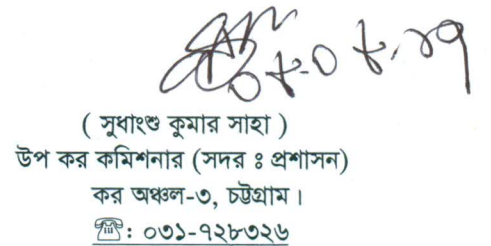 ( সুধাংশু কুমার সাহা )
উপ কর কমিশনার (সদর ঃ প্রশাসন)
কর অঞ্চল-৩, চট্টগ্রাম।
☎: ০৩১-৭২৮৩২৬